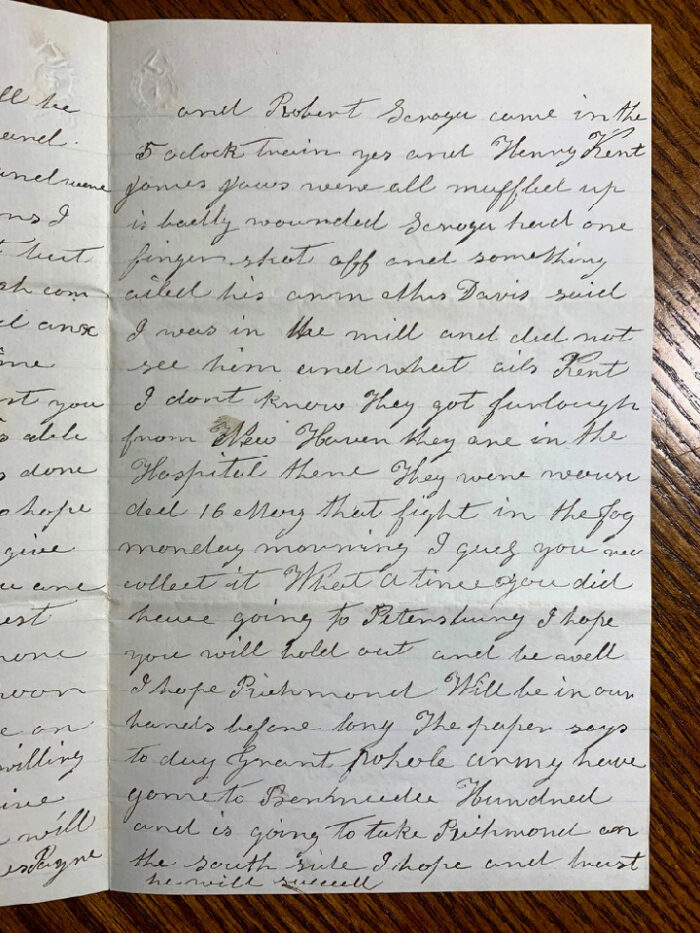 ll be
and
and were
ns I
t but
com
d anx
me
rt you
able
done
hope
give
are
est
on
willing
will
Payne
and Robert came in the
5 oclock train yes and Henry Kent
jaws were all muffled up
is badly wounded had one
finger shot off and something
ailed his arm Mrs Davis said
I was in the mill and did not
see him and what ails Kent
I dont know They got furlough
from New Haven they are in the
Hospital there They were woun
ded 16 May that fight in the fog
monday mourning I gues you rec
collect it What a time you did
have going to Petersburg I hope
you will hold out and be well
I hope Richmond Will be in our
hands before long The paper says
to day Grant whole army have
gone to Bermudee Hundred
and is going to take Richmond on
the south side I hope and trust
he will succell